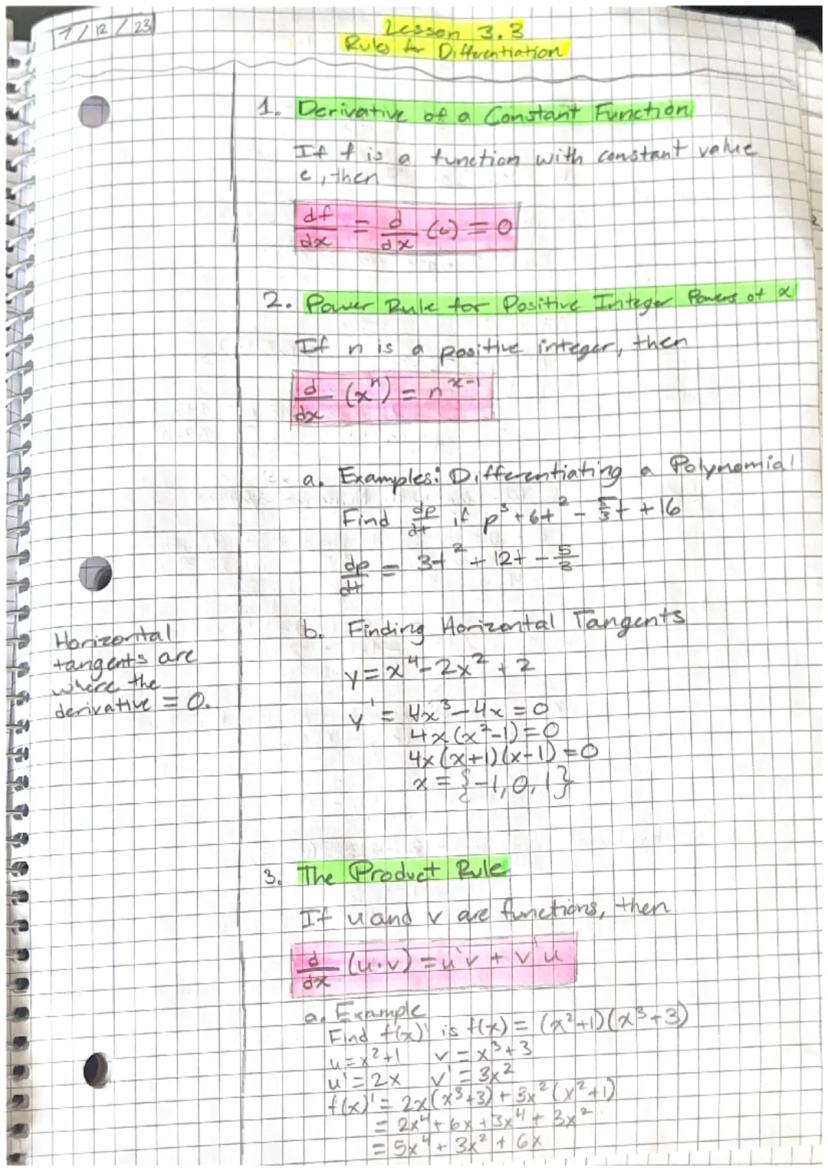 7/12/23
Lesson 3.3
Rules for Differentiation
1. Derivative of a Constant Function
If f is a function with constant value
c, then
df/dx = d/dx (c) = 0
2. Power Rule for Positive Integer Powers of x
If n is a positive integer, then
d/dx (xⁿ) = n^(x-1)
a. Examples: Differentiating a Polynomial
Find dp/dt if p³ + 6t² - 5/3 t + 16
dp/dt = 3t² + 12t - 5/3
Horizontal
tangents are
where the
derivative = 0.
b. Finding Horizontal Tangents
y = x⁴ - 2x² + 2
y' = 4x³ - 4x = 0
4x(x²-1) = 0
4x(x+1)(x-1) = 0
x = {-1, 0, 1}
3. The Product Rule
If u and v are functions, then
d/dx (u·v) = u'v + v'u
a. Example
Find f(x)' is f(x) = (x²+1)(x³+3)
u = x²+1 v = x³+3
u' = 2x v' = 3x²
f(x)' = 2x(x³+3) + 3x²(x²+1)
= 2x⁴ + 6x + 3x⁴ + 3x²
= 5x⁴ + 3x² + 6x